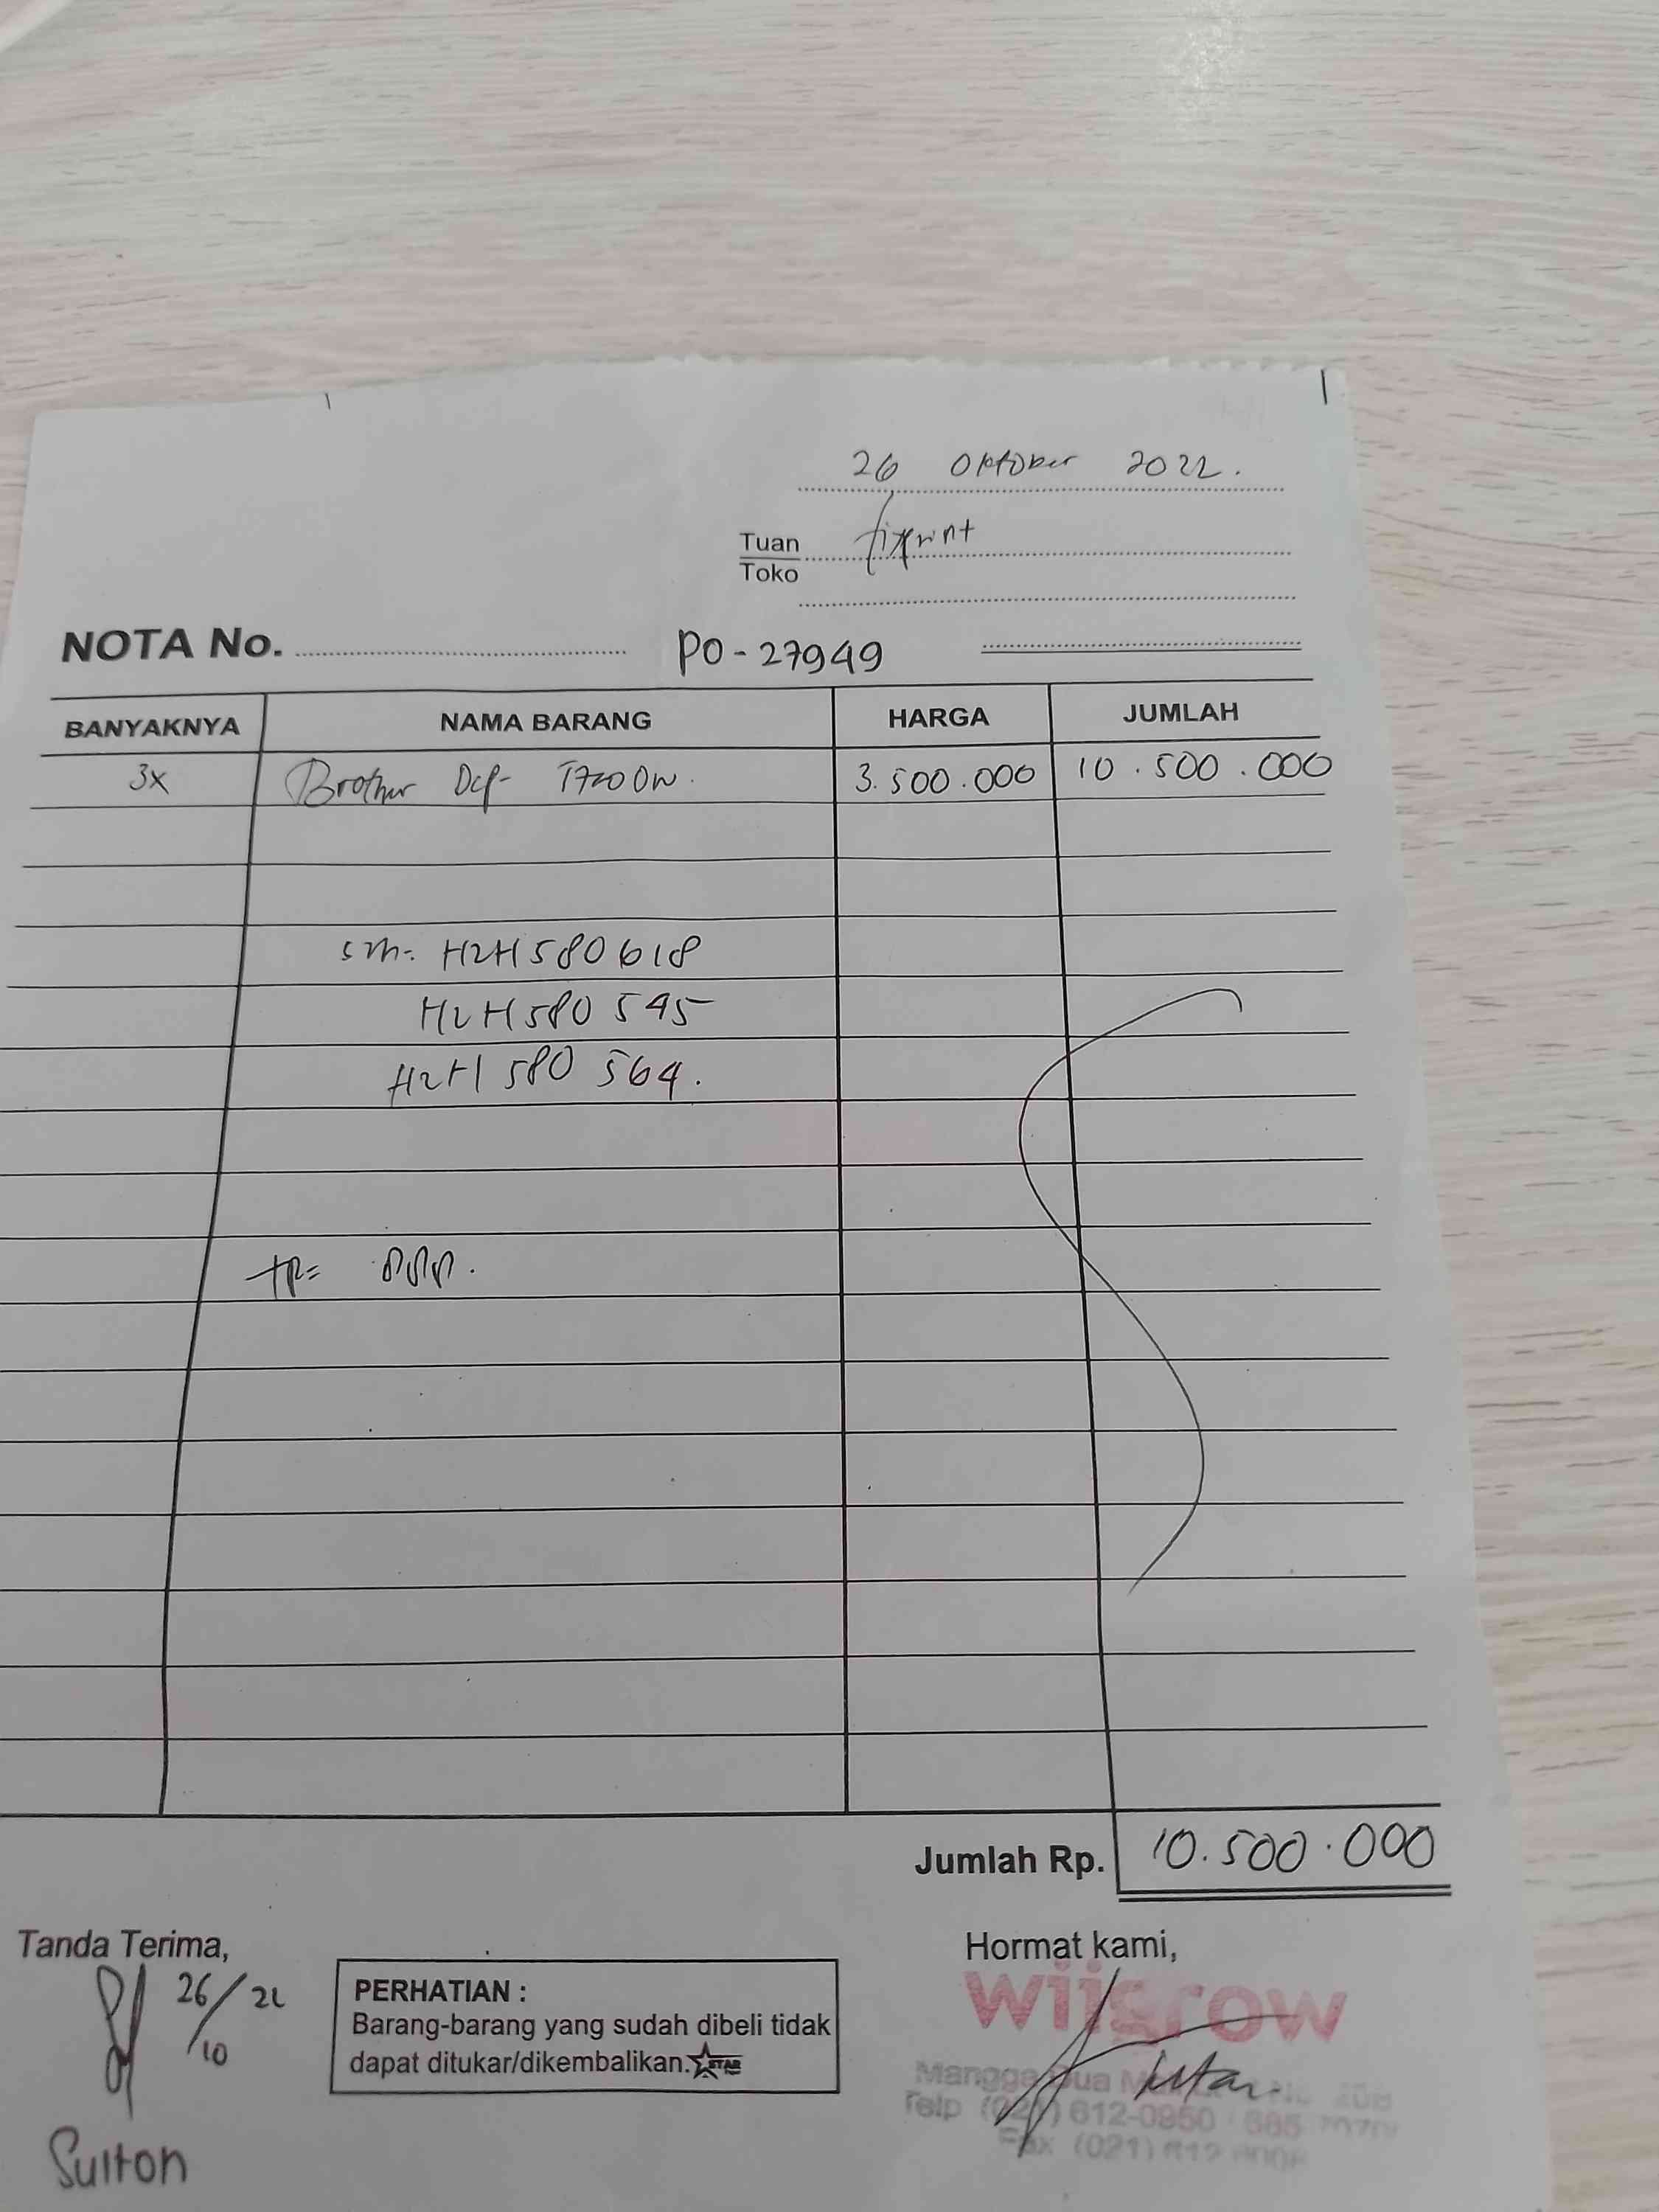 26 Oktober 2022.
Tuan fixprint
Toko
NOTA No. PO-27949
BANYAKNYA NAMA BARANG HARGA JUMLAH
3x Brother Dcp- T720DW. 3.500.000 10.500.000
sn: H2H580618
H2H580595
H2H580564.
Jumlah Rp. 10.500.000
Tanda Terima, Hormat kami,
26/10 22
PERHATIAN :
Barang-barang yang sudah dibeli tidak
dapat ditukar/dikembalikan. STAR
Sulton
Mangga Dua
Telp (021) 612-0950
Fax (021) 612